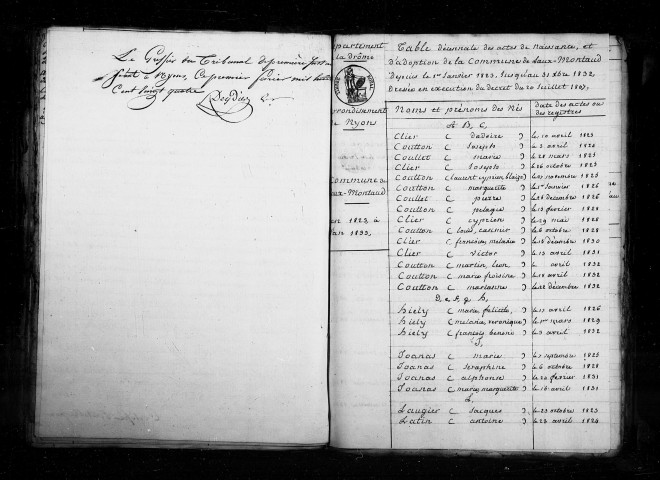 Le Greffier du Tribunal de première
à Nyons, ce premier mil huit
Cent vingt quatre
Département
la drôme
arrondissement
de Nyons
Commune de
Vaux-Montaud
en 1823 à
l'an 1833.
Table décennale des actes de Naissance, et
d'adoption de la Commune de Vaux-Montaud
Depuis le 1er Janvier 1823, Jusqu'au 31 Xbre 1832,
Dressée en exécution du décret du 20 Juillet 1807.
Noms et prénoms des Nés
date des actes ou des registres
A B, C,
Clier ( ) le 10 avril 1823
Coutton ( Joseph ) le 2 avril 1824
Coullet ( marie ) le 28 mars 1825
Clier ( Joseph ) le 26 octobre 1825
Coutton ( laurent cyprien blaize ) le novembre 1825
Coutton ( marguerite ) le 1er Janvier 1826
Coullet ( pierre ) le 26 décembre 1826
Coutton ( pelagie ) le 13 février 1828
Clier ( cyprien ) le 29 mai 1828
Coutton ( louis, casimir ) le 6 octobre 1828
Clier ( françoise, melanie ) le 16 décembre 1830
Clier ( victor ) le 13 avril 1831
Coutton ( martin, leon ) avril 1832
Coutton ( marie froisine ) le 10 avril 1832
Coutton ( marianne ) le 22 décembre 1832
D, e, f, g, h,
hiely ( marie felicité, ) le 11 avril 1826
hiely ( melanie, veronique ) le 1er mars 1829
hiely ( françois benoni ) le 3 avril 1832
J,
Joanas ( marie ) le 7 septembre 1825
Joanas ( seraphine ) le 6 octobre 1828
Joanas ( alphonse ) le 20 février 1831
Joanas ( marie, marguerite ) le 18 avril 1831
L.
Laugier ( Jacques ) le 23 octobre 1823
Latin ( antoine ) le 28 avril 1824